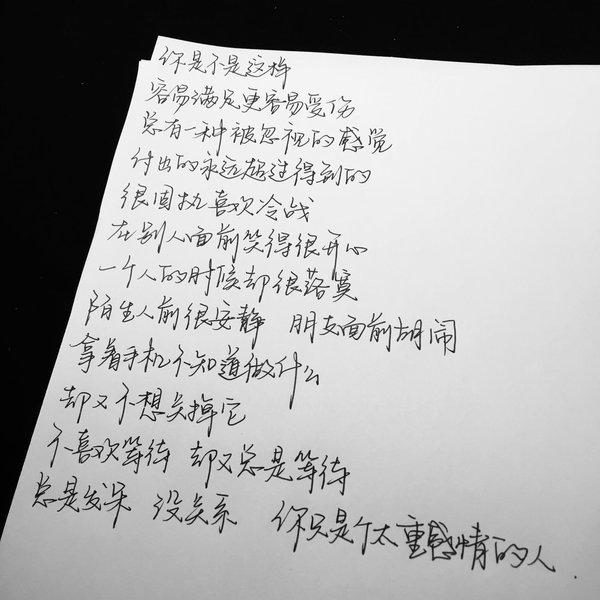 你是不是这样
容易满足更容易受伤
总有一种被忽视的感觉
付出的永远超过得到的
很固执喜欢冷战
在别人面前笑得很开心
一个人的时候却很落寞
陌生人前很安静 朋友面前胡闹
拿着手机不知道做什么
却又不想关掉它
不喜欢等待 却又总是等待
总是发呆 没关系 你只是个太重感情的人.